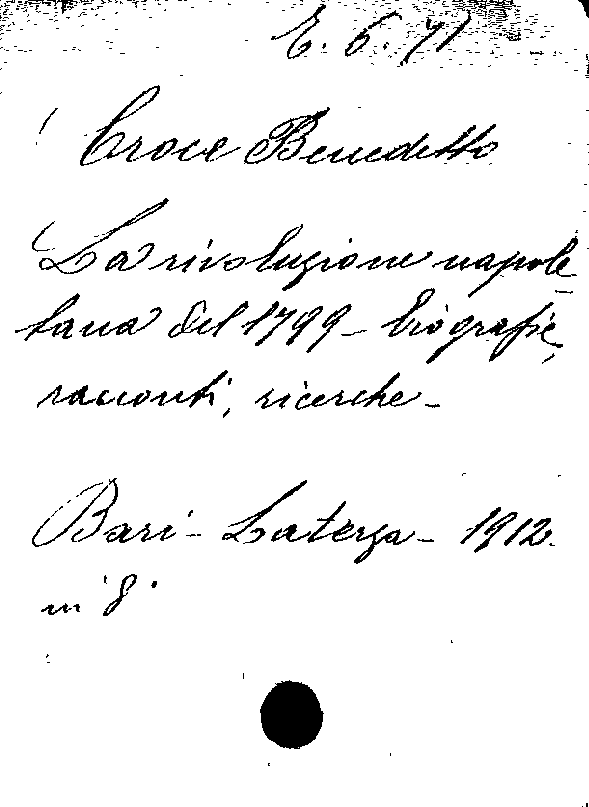 E. 6. 71
Croce Benedetto
La rivoluzione napole
tana del 1799 - biografie,
racconti, ricerche -
Bari - Laterza - 1912.
in 8°